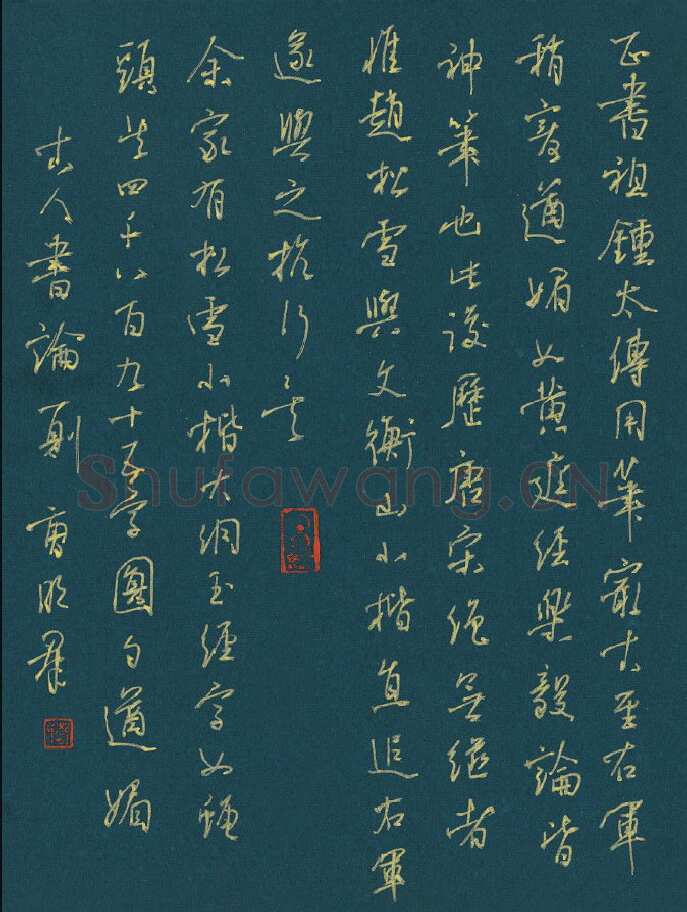 正書祖鍾太傅用筆最古至右軍
稍容遒媚如黃庭經樂毅論皆
神筆也此後歷唐宋絕無繼者
惟趙松雪與文衡山小楷直追右軍
遂與之抗行矣
余家有松雪小楷大洞玉經字如蠅
頭共四千八百九十五字圓勻遒媚
古人書論一則 曹明群
Shufawang.CN